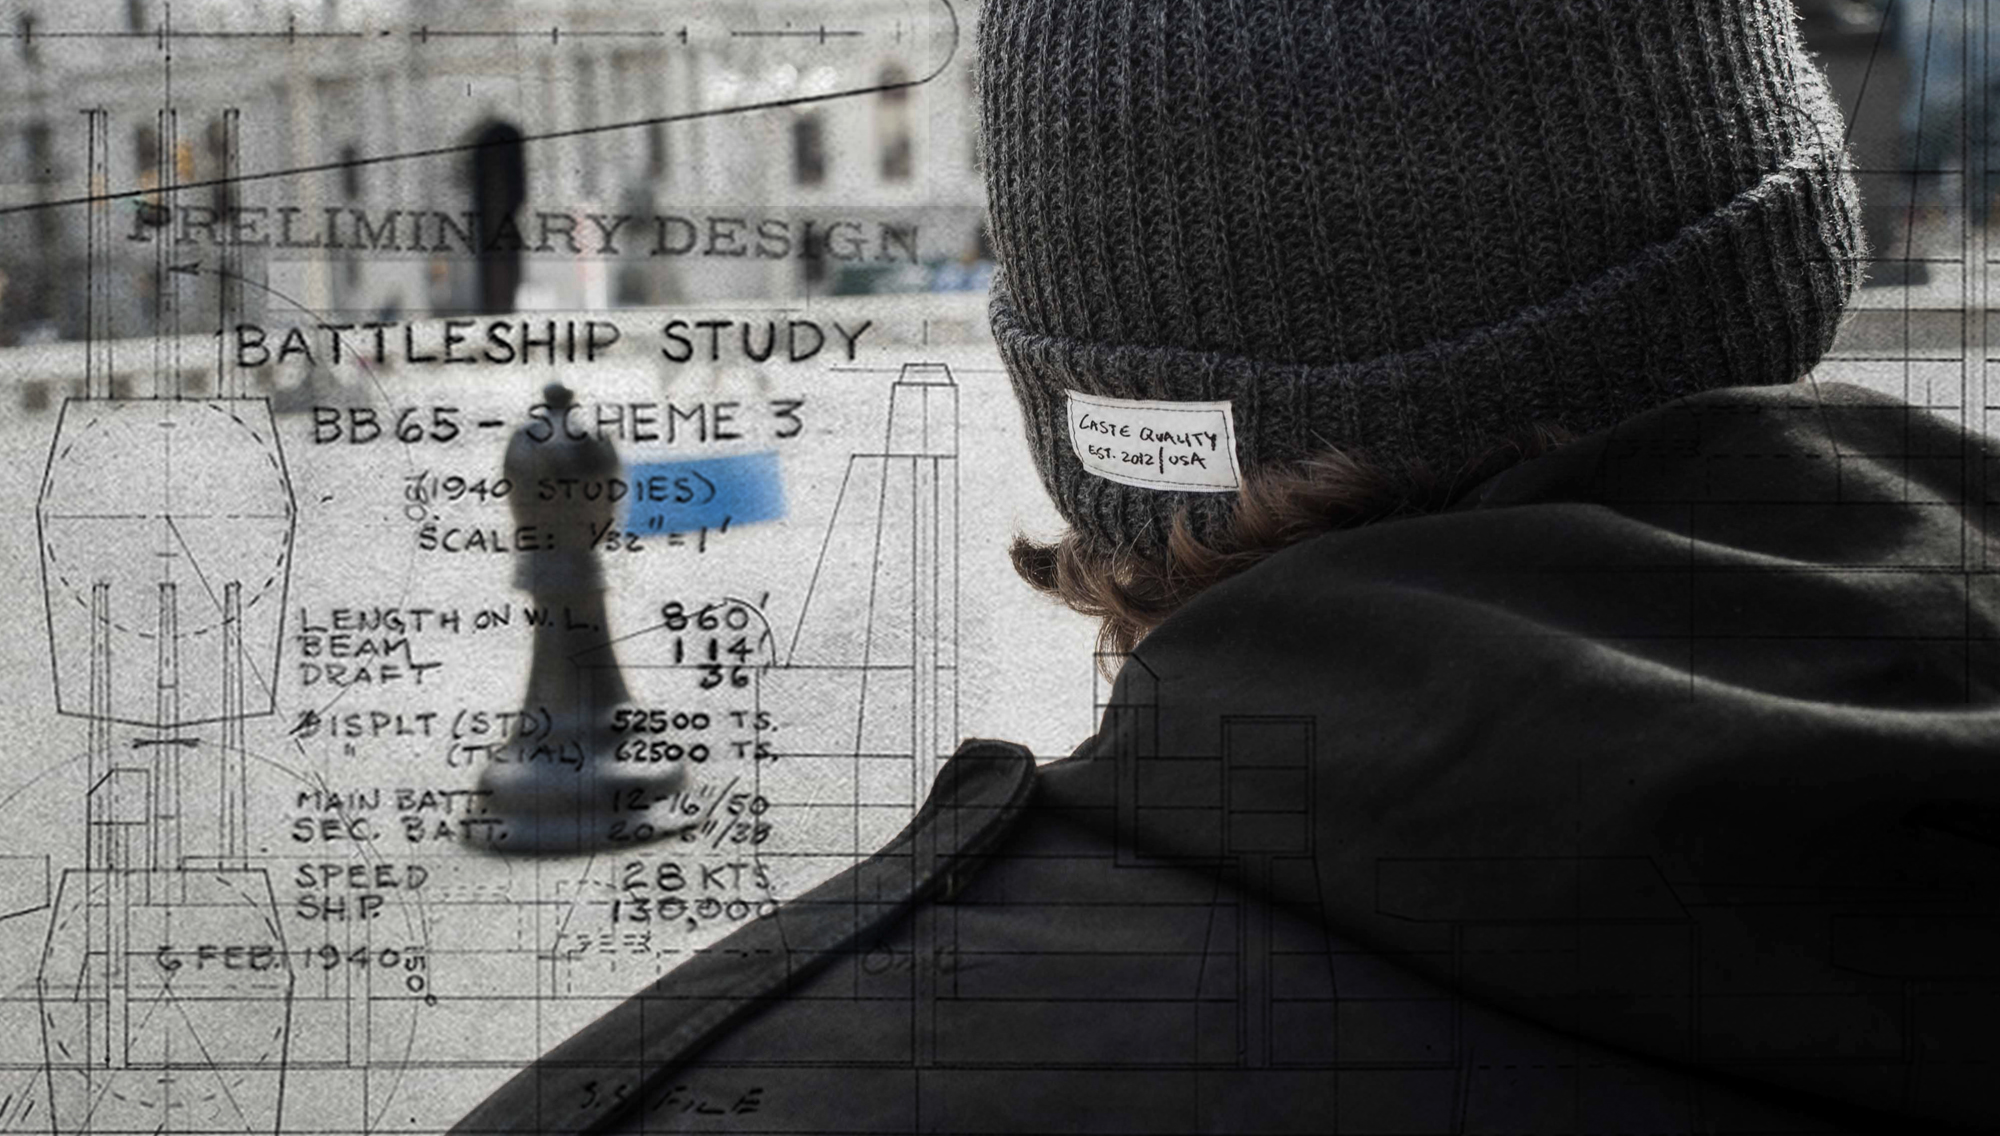 PRELIMINARY DESIGN
BATTLESHIP STUDY
BB 65 - SCHEME 3
(1940 STUDIES)
SCALE: 1/32" = 1'
LENGTH ON W.L. 860'
BEAM 114
DRAFT 36
DISPLT (STD) 52500 TS.
" (TRIAL) 62500 TS.
MAIN BATT. 12-16"/50
SEC. BATT. 20-5"/38
SPEED 28 KTS.
S.H.P. 130,000
6 FEB. 1940
150°
S.S FILE
CASTE QUALITY
EST. 2012 | USA